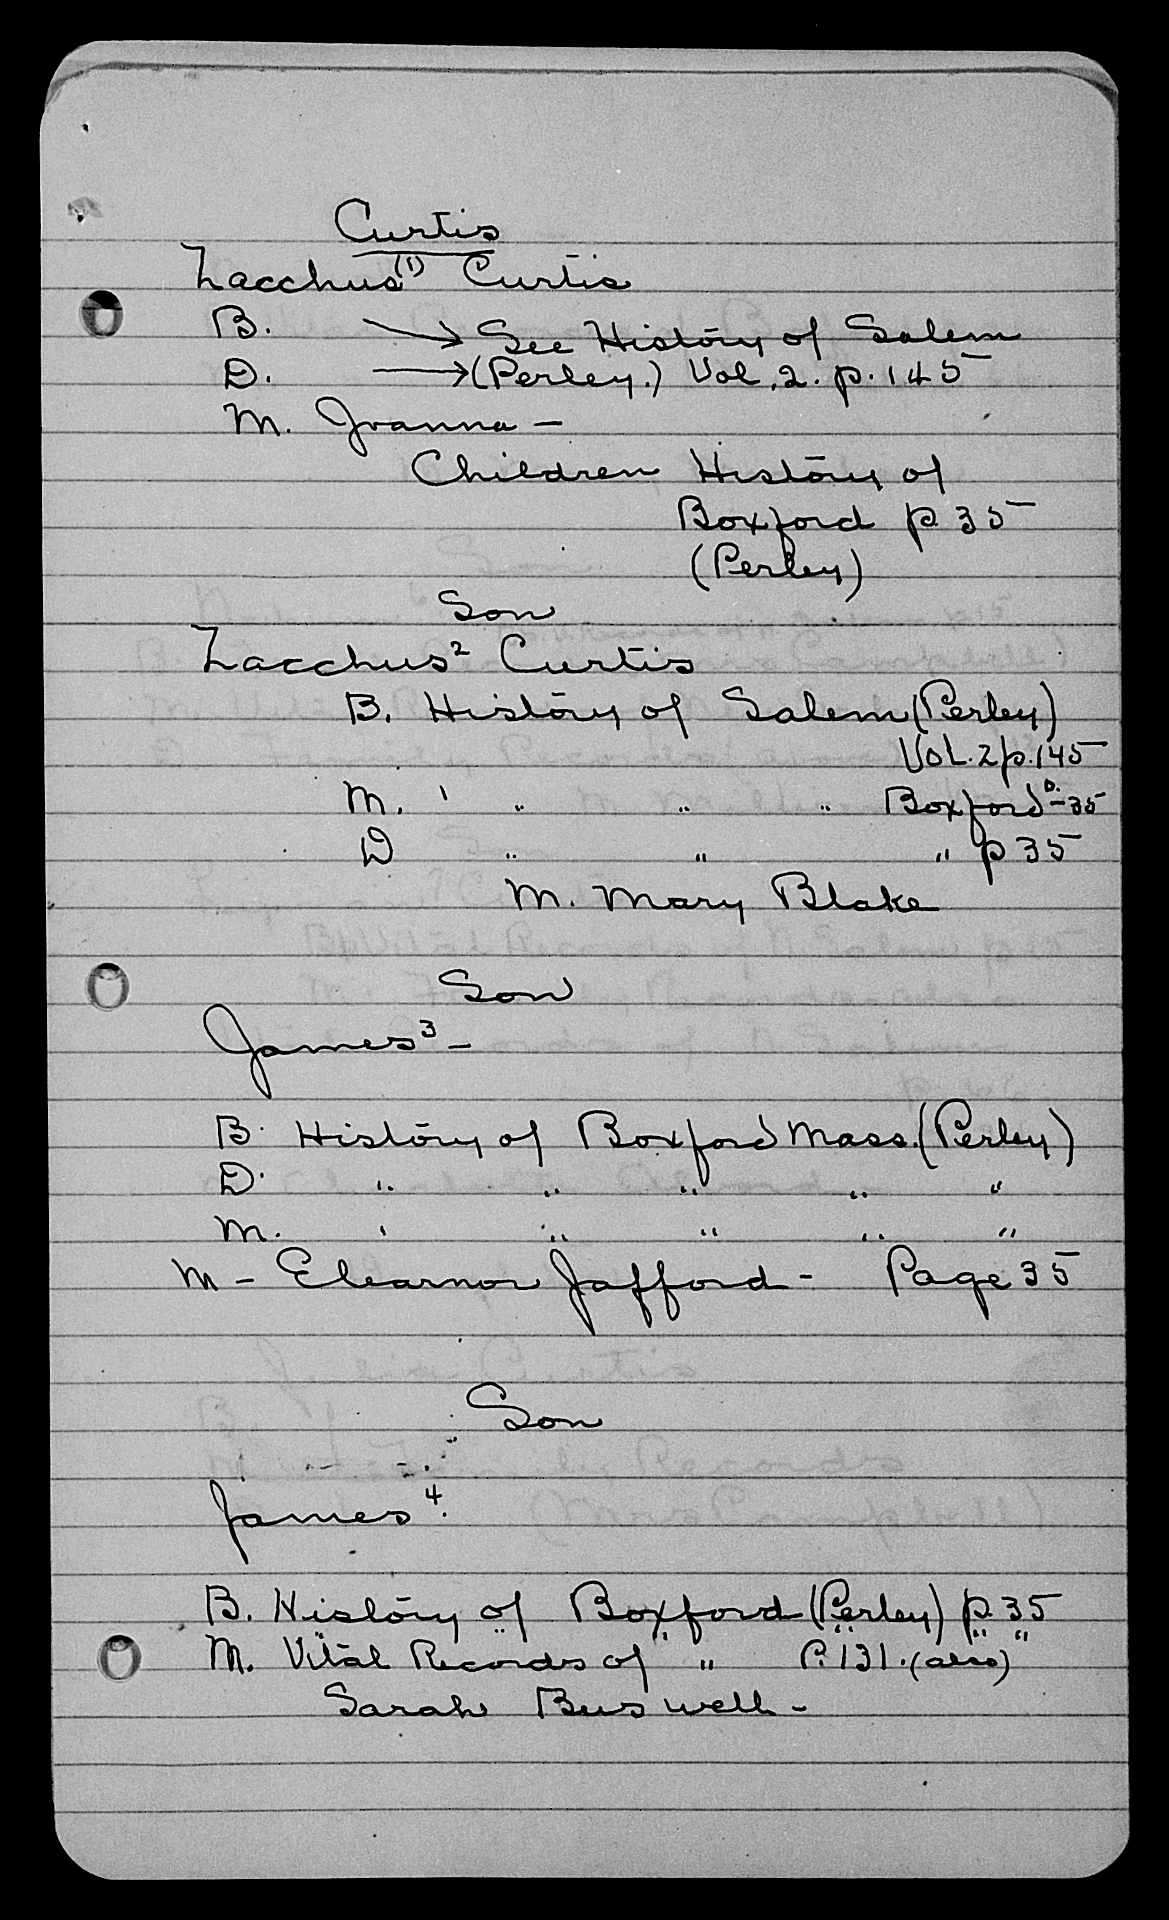 Curtis
Zacchus(1) Curtis
B. → See History of Salem
D. → (Perley.) Vol. 2. p. 145
M. Joanna —
Children History of
Boxford p. 35
(Perley)
Son
Zacchus² Curtis
B. History of Salem (Perley)
Vol. 2 p. 145
M. ' " " " Boxford p. 35
D " " " p 35
M. Mary Blake
Son
James³ –
B. History of Boxford Mass. (Perley)
D. " " " " "
M. ' " " " "
M – Elearnor Jafford – Page 35
Son
James⁴.
B. History of Boxford (Perley) p. 35
" " " " " "
M. Vital Records of " P. 131. (also)
Sarah Buswell –